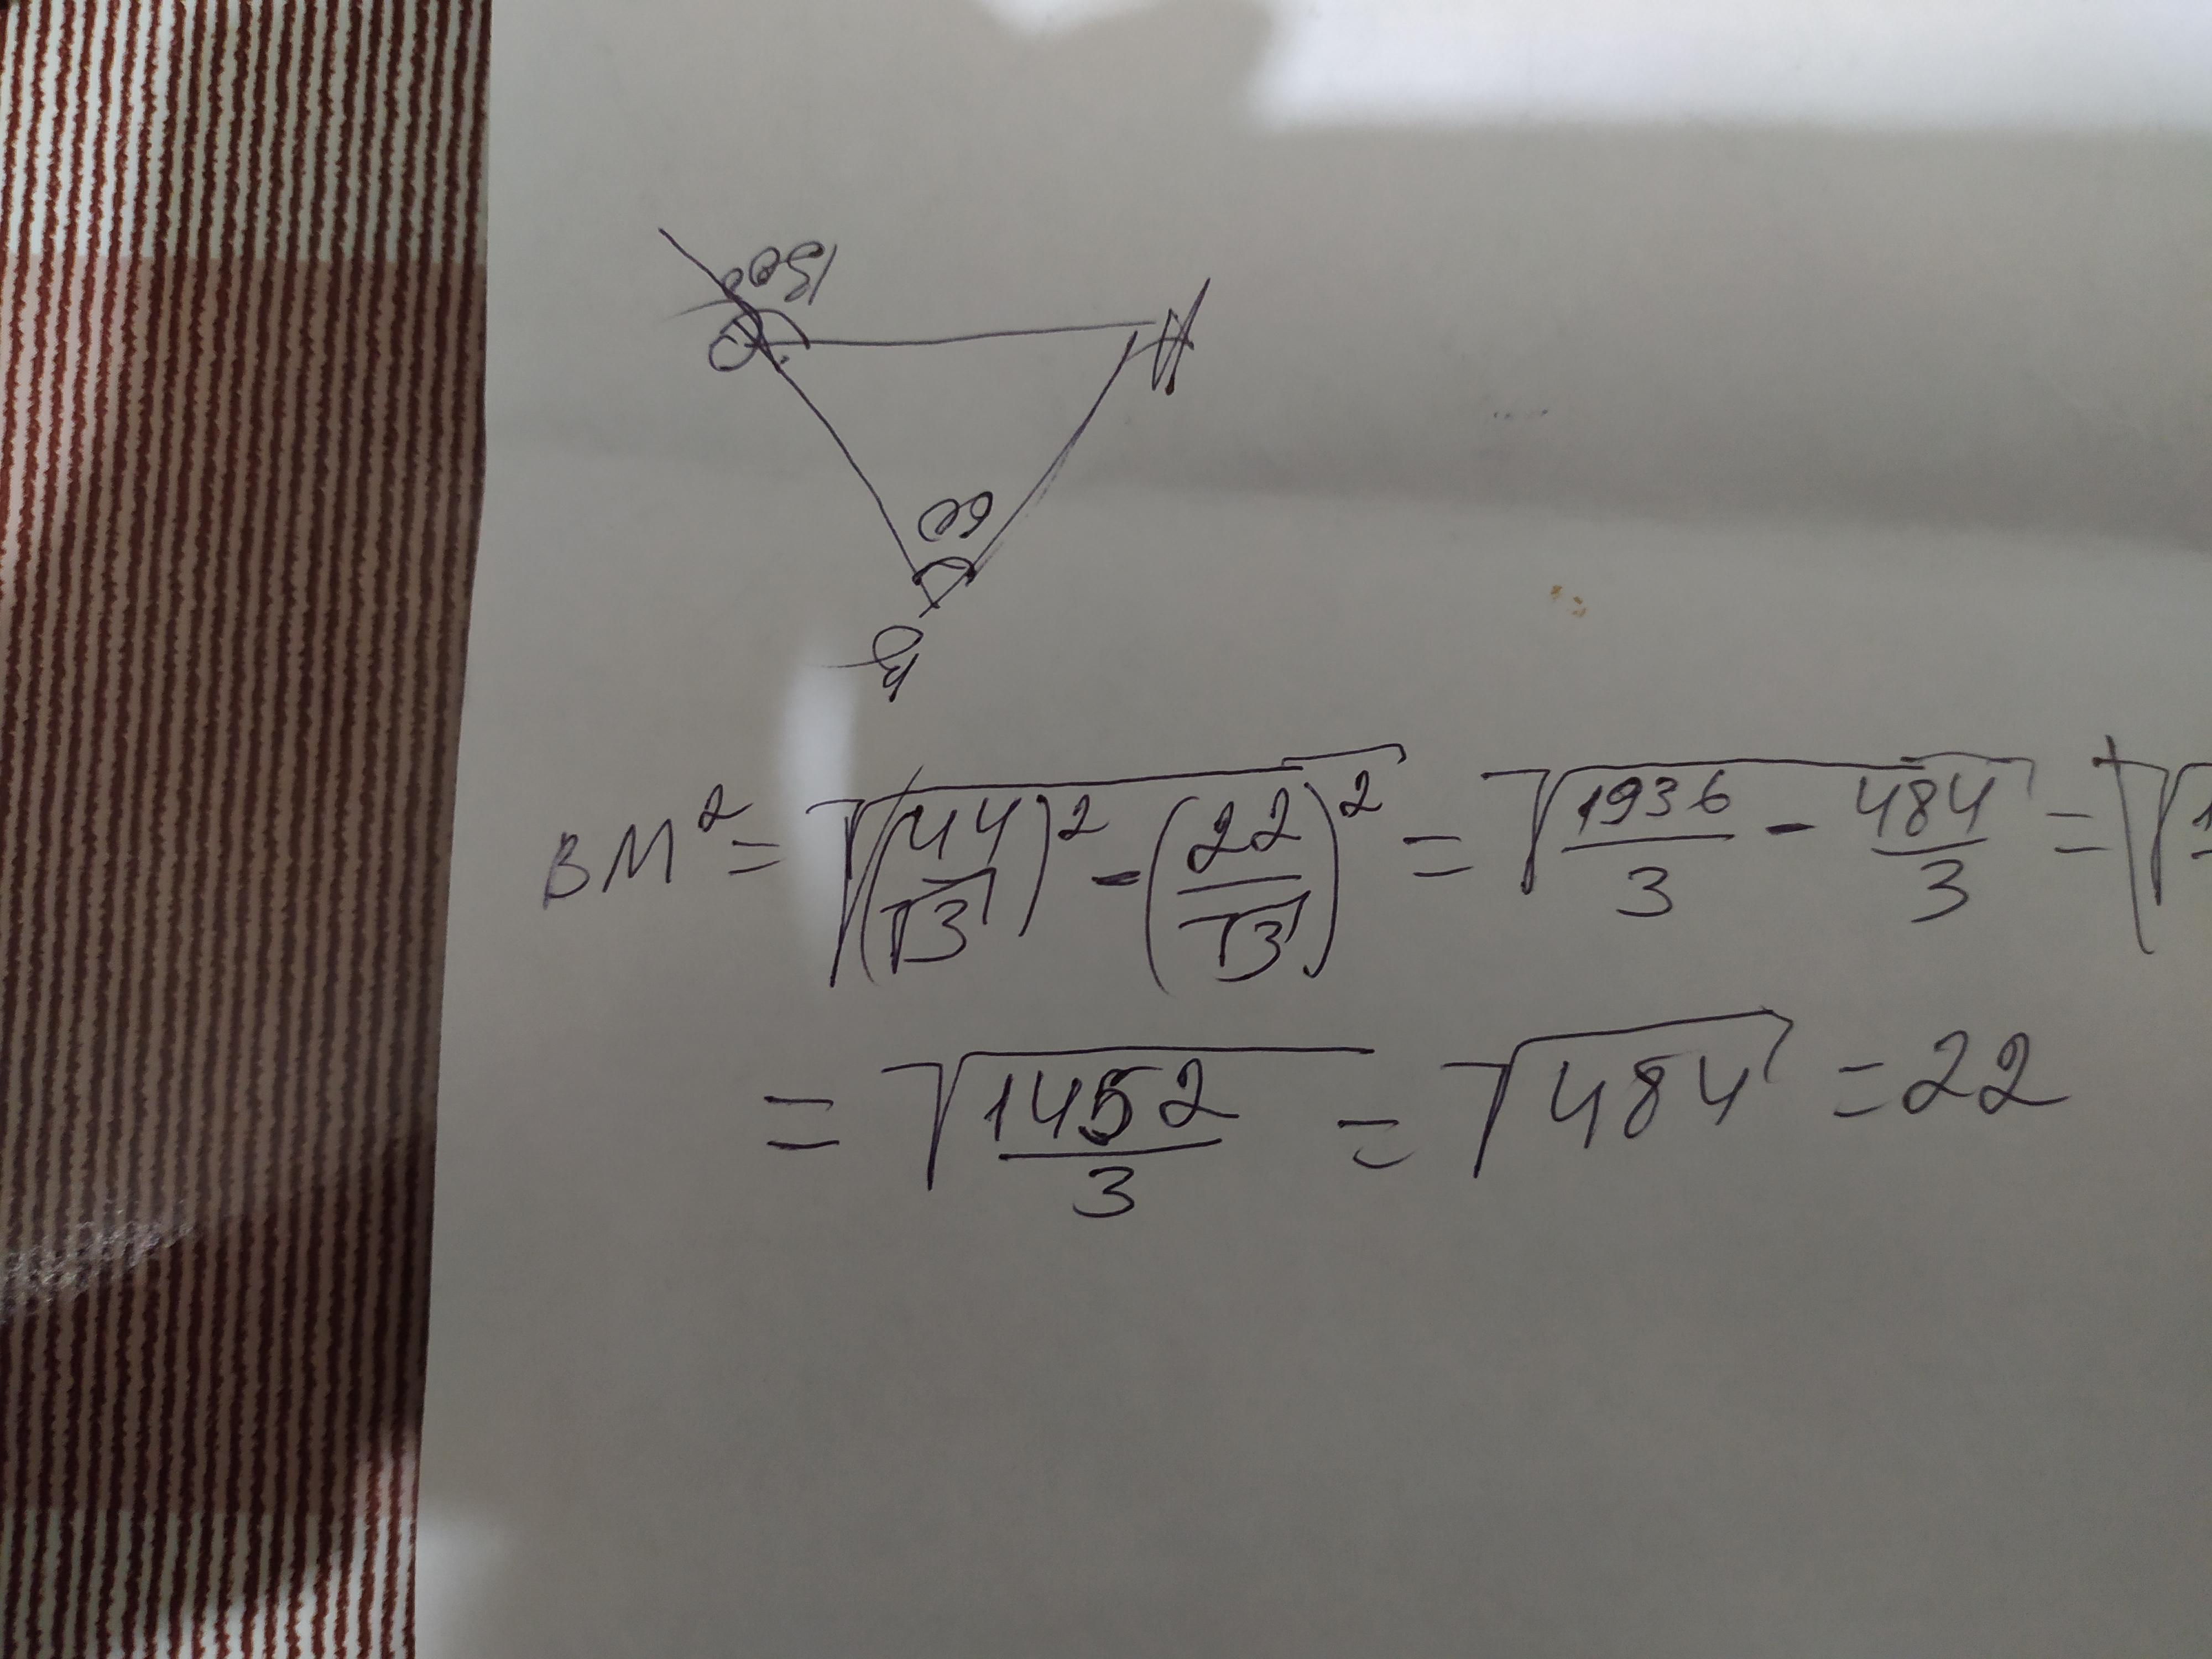 60
BM² = √((44/√3)² - (22/√3)²) = √(1936/3 - 484/3) =
= √(1452/3) = √484 = 22